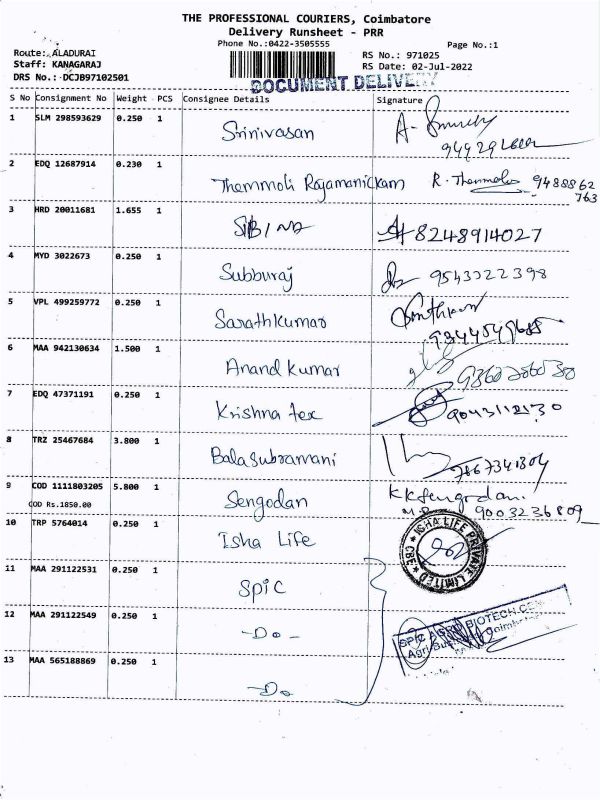 THE PROFESSIONAL COURIERS, Coimbatore
Delivery Runsheet - PRR
Phone No.:0422-3505555
Page No.:1
Route: ALADURAI
RS No.: 971025
Staff: KANAGARAJ
RS Date: 02-Jul-2022
DRS No.: DCJB97102501
DOCUMENT DELIVERY
S No Consignment No Weight PCS Consignee Details Signature
1 SLM 298593629 0.250 1 Srinivasan
2 EDQ 12687914 0.230 1 Themmoli Rajamanickam R. Thenmoli 9488862
763
3 HRD 20011681 1.655 1 8248914027
4 MYD 3022673 0.250 1 Subburaj 9543222398
5 VPL 499259772 0.250 1 Sarathkumar
6 MAA 942130634 1.500 1 Anand kumar
7 EDQ 47371191 0.250 1 Krishna tex 9043112130
8 TRZ 25467684 3.800 1 Balasubramani
9 COD 1111803205 5.800 1 Sengodan KKSengodan
COD Rs.1850.00 9003236809
10 TRP 5764014 0.250 1 Isha Life
ISHA LIFE PRIVATE LIMITED CBE
11 MAA 291122531 0.250 1 SPIC
12 MAA 291122549 0.250 1 -Do-
SPIC AGRO BIOTECH CEN
13 MAA 565188869 0.250 1 -Do